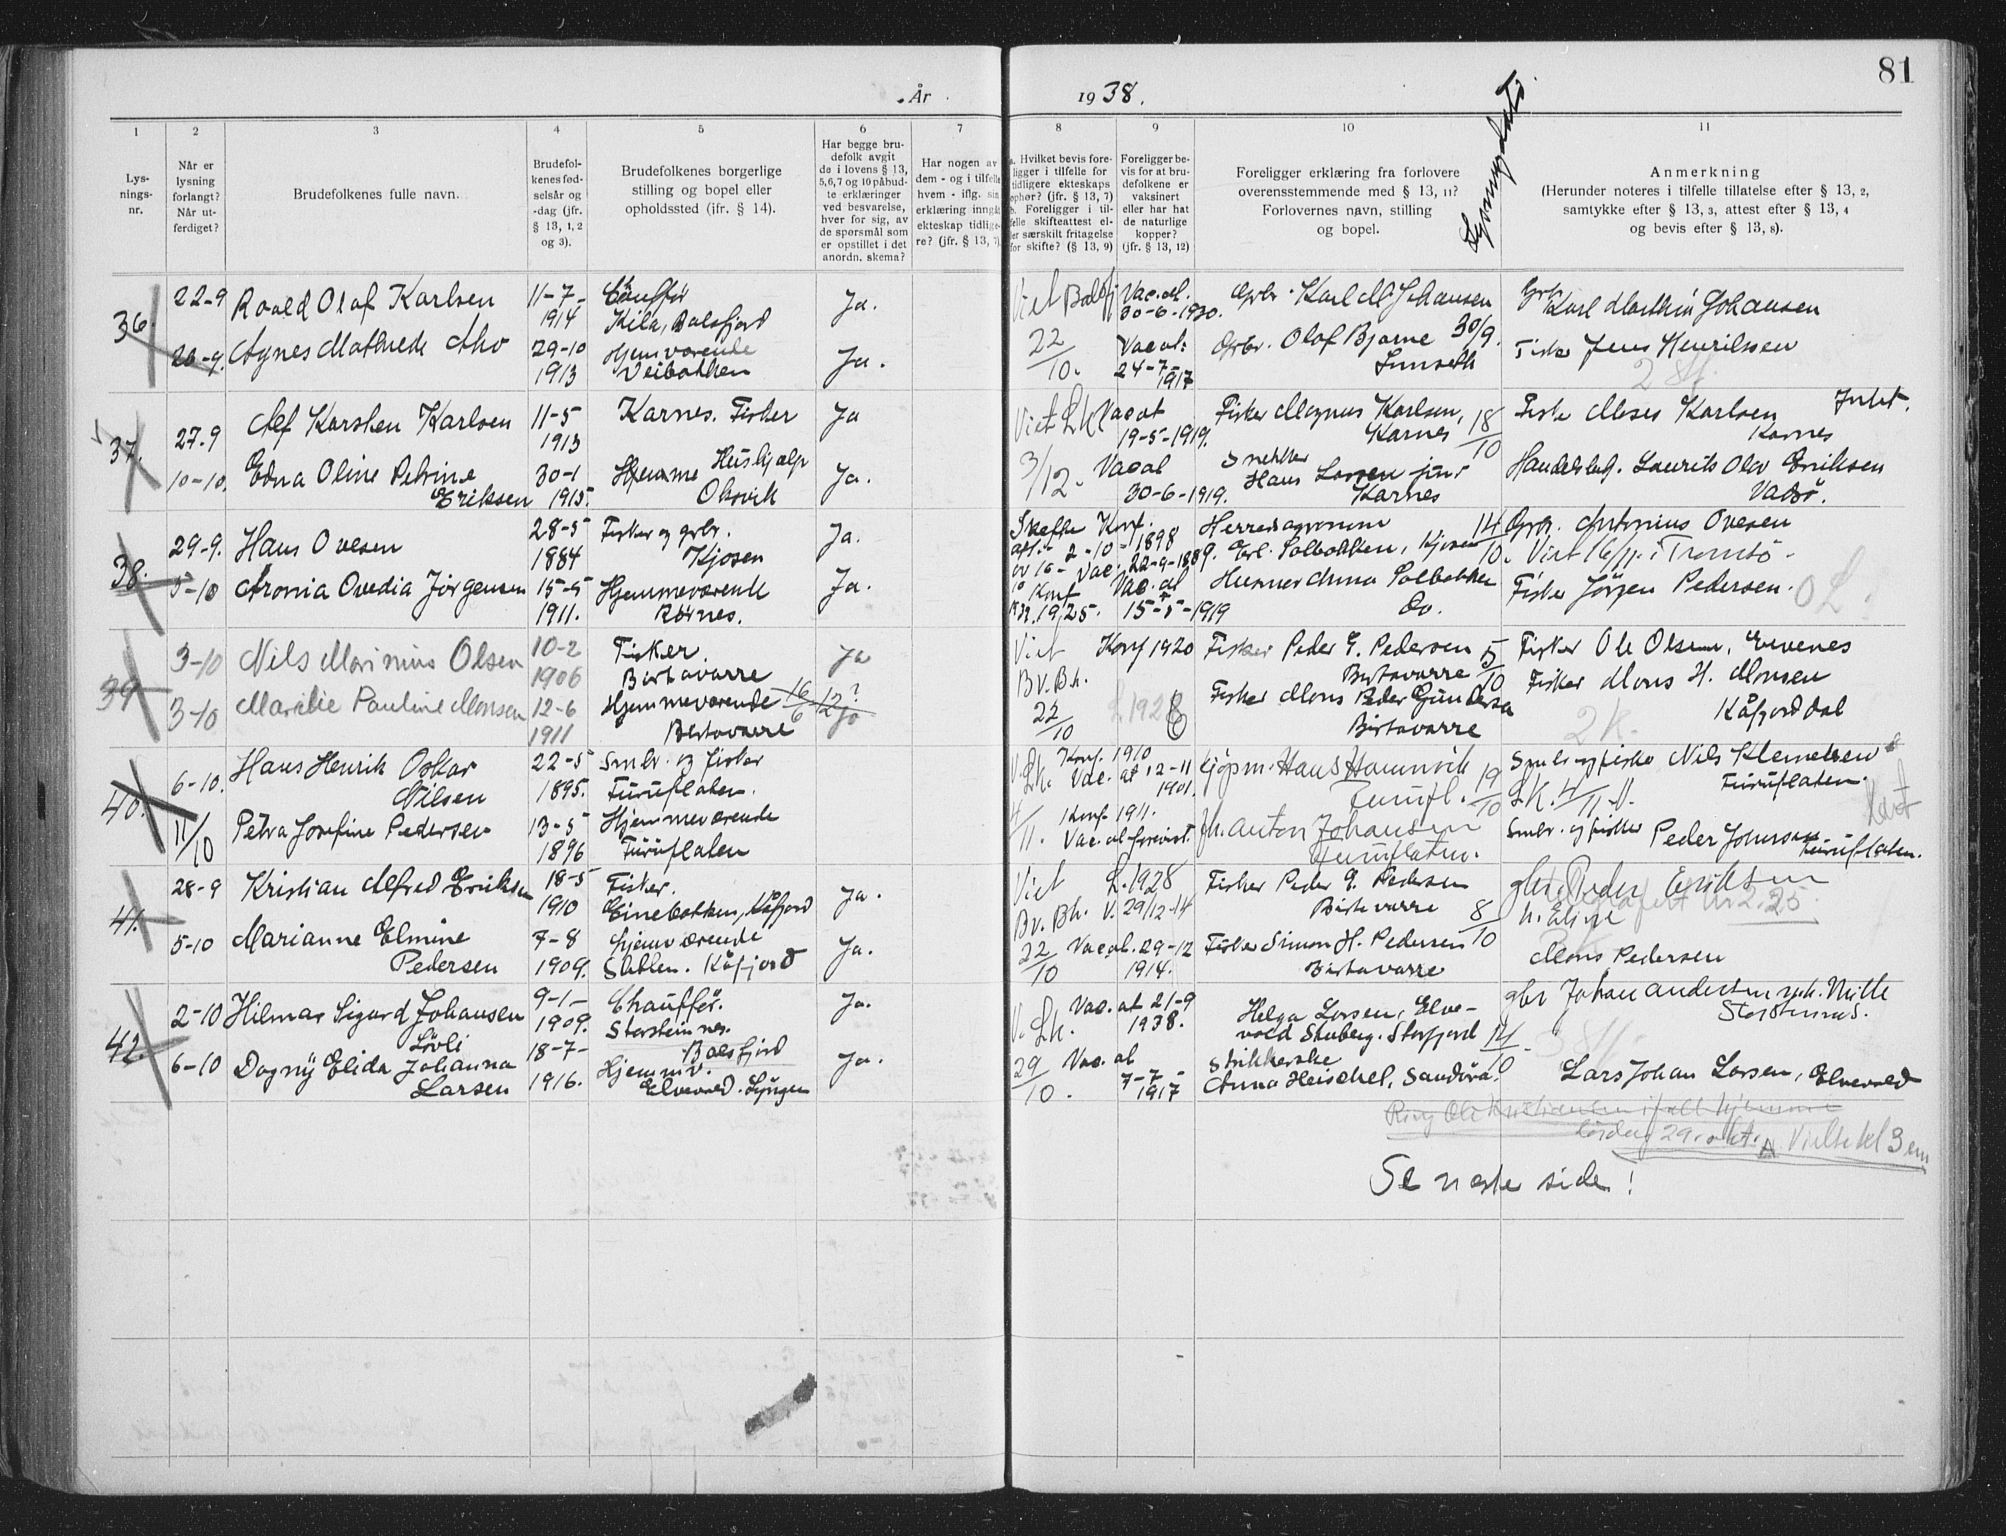 81
År 1938.
Lysningsdato
1 2 3 4 5 6 7 8 9 10 11
Lys-
nings-
nr.
Når er
lysning
forlangt?
Når ut-
ferdiget?
Brudefolkenes fulle navn.
Brudefol-
kenes fød-
selsår og
-dag (jfr.
§ 13, 1, 2
og 3).
Brudefolkenes borgerlige
stilling og bopel eller
opholdssted (jfr. § 14).
Har begge bru-
defolk avgit
de i lovens § 13,
5,6,7 og 10 påbud-
te erklæringer
ved besvarelse,
hver for sig, av
de spørsmål som
er opstillet i det
anordn. skema?
Har nogen av
dem - og i tilfelle
hvem - iflg. sin
erklæring inngåt
ekteskap tidlige-
re? (jfr. § 13, 7)
a. Hvilket bevis fore-
ligger i tilfelle for
tidligere ekteskaps
ophør? (jfr. § 13, 7)
b. Foreligger i til-
felle skifteattest el-
ler særskilt fritagelse
for skifte? (§ 13, 9)
Foreligger be-
vis for at bru-
defolkene er
vaksinert
eller har hat
de naturlige
kopper?
(jfr. § 13, 12)
Foreligger erklæring fra forlovere
overensstemmende med § 13, 11?
Forlovernes navn, stilling
og bopel.
Anmerkning
(Herunder noteres i tilfelle tillatelse efter § 13, 2,
samtykke efter § 13, 3, attest efter § 13, 4
og bevis efter § 13, 8).
36. 22-9 Roald Olaf Karlsen 11-7- Ja. Viet Balsfj Vac.at. Grbr. Karl M. Johansen Grb. Karl Marthin Johansen
1914 Kila, Balsfjord 30-6-1920.
26-9. Agnes Mathilde Aho 29-10 Hjemmværende Ja. 22/10. Vac at: Grbr. Olaf Bjarne 30/9. Fisker Jens Henrikssen
1913 Veibakken 24-7-1917
37. 27.9 Alf Karsten Karlsen 11-5 Karnes. Fisker Ja Viet L.K. Vac at Fisker Magnus Karlsen, 18/10 Fisker Moses Karlsen
1913 19-5-1919. Karnes Karnes
10-10. Edna Oline Petrine 30-1 Hjemme Hushjælp Ja. 3/12. Vac at Snekker Hans Larsen junr Handelsbet. Laurits Olav Eriksen
Eriksen 1915. Oksvik 30-6-1919. Karnes Vadsø.
38. 29-9. Hans Ovesen 28-5 Fisker og grbr. Ja. Konf. Herredsagronom 14/10. Grbr. Antonius Ovesen
1884 Kjosen 2-10-1898 Erl. Solbakken, Kjosen Viet 16/11 i Tromsø.
Vac. 22-9-1889.
5-10 Aronia Ovedia Jørgensen 15-5 Hjemmeværende Ja. Konf Vac. at Solbakken Fisker Jörgen Pedersen.
1911. Rørnes. 1925. 15-5-1919 Do.
39 3-10 Nils Marinius Olsen 10-2 Fisker. Ja Viet Konf 1920 Fisker Peder G. Pedersen 5/10 Fisker Ole Olsen, Evenes
1906 Birtavarre Bv.Bh. Birtavarre
3-10 Pauline Monsen 12-6 Hjemmeværende 22/10 L.1928 Fisker Mons Peder Gundersen Fisker Mons H. Monsen
1911 Birtavarre Birtavarre Kåfjorddal
2 K.
40. 6-10. Hans Henrik Oskar 22-5 Smbr. og fisker V. Konf. 1910 Kjøpm. Hans Hamnvik 19/10 Smbr og fisker Nils Klemetsen
Nilsen 1895. Furuflaten. L.k. Vac. at 12-11 1901. Furufl. Furuflaten.
11/10 Petra Josefine Pedersen 13-5 Hjemmeværende 4/11. Konf. 1911. Anton Johansen L.K. 4/11 Smbr. og fisker Peder Johnsen
1896 Furuflaten Vac. at forevist. Furuflaten. Furuflaten.
41. 28-9 Kristian Alfred Eriksen 18-5 Fisker. Ja. Viet L.1928 Fisker Peder G. Pedersen gbr Peder Eriksen
1910 Einebakken, Kåfjord Bv. Bh. V. 29/12-14 Birtavarre 8/10
5-10 Marianne Elmine 7-8 Hjemværende Ja. 22/10 Vac at. 29-12 Fisker Simon H. Pedersen
Pedersen 1909. Kåfjord 1914. Birtavarre Mons Pedersen
42. 2-10 Hilmar Sigurd Johansen 9-1- Chauffør. Ja. V. L.k. Vac. at 21-9 Helga Larsen, Elve- gbr Johan Andersen
Løvli 1909. Storsteinnes. 1938. vold Skuberg. Storfjord 14/10
6-10 Dagny Elida Johanna 18-7- Balsfjord Ja. 29/10. Vac. at Strikkerske
Larsen 1916. Hjemmv. Elvevold. Lyngen 7-7-1917 Anna Heischel, Sandöra. Lars Johan Larsen, Elvevold
Ring Ole Kristiansen
lørdag 29. okt. Vielse kl 3 em
Se neste side!